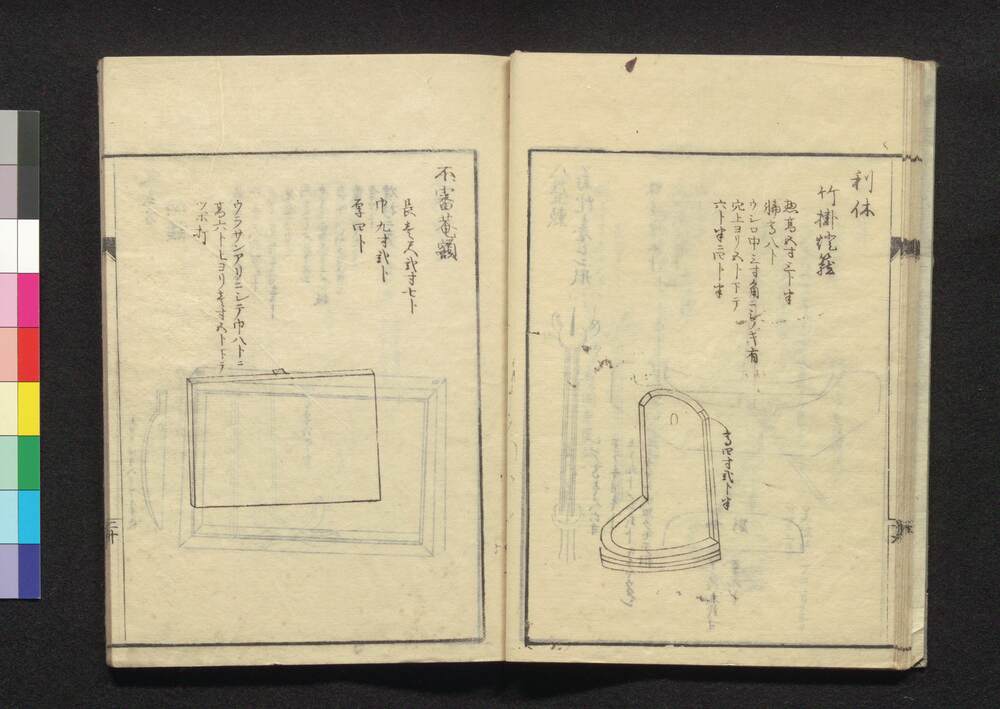 利休
竹掛燈籠
惣高五寸三ト半
幅高八ト
ウシロ巾三寸角ニシノギ有
穴上ヨリ五ト下テ
六ト半ニ四ト半
高四寸弐ト半
不審菴額
長壱尺弐寸七ト
巾九寸弐ト
厚四ト
ウラサンアリニシテ巾八トニ
高六ト上ヨリ壱寸五ト下テ
ツボ打
二十